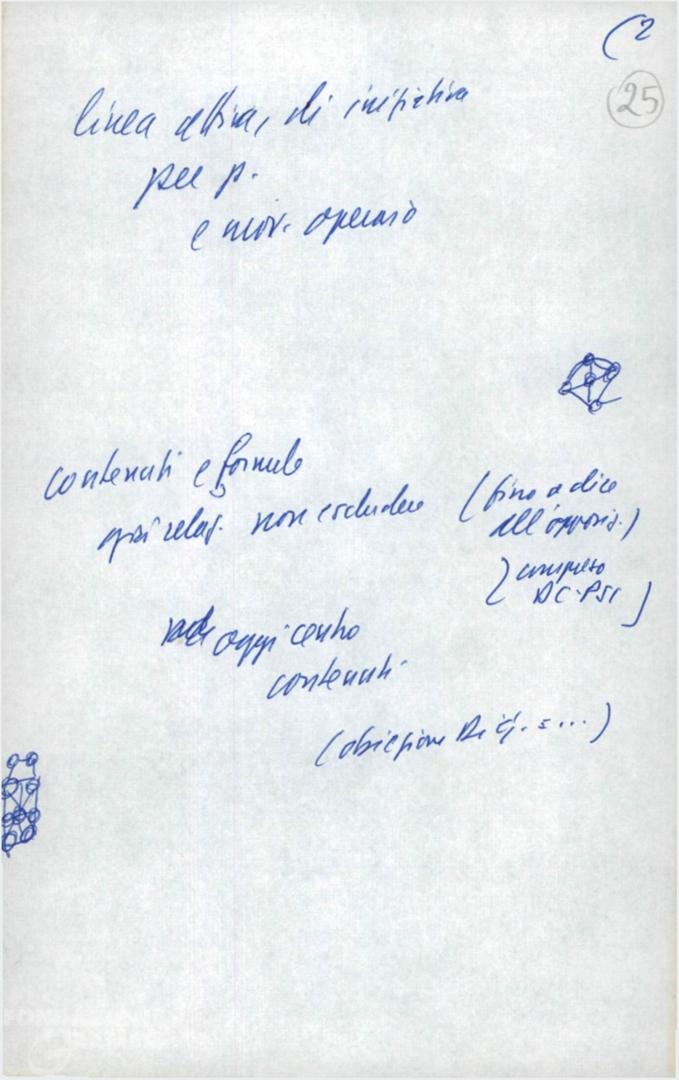 (2
25
linea attiva, di iniziativa
per p.
e mov. operaio
contenuti e formule
ogni relaz. non escludere (fino a dire
all'opposiz.)
compreso
DC-PSI
oggi centro
contenuti
(obiezione